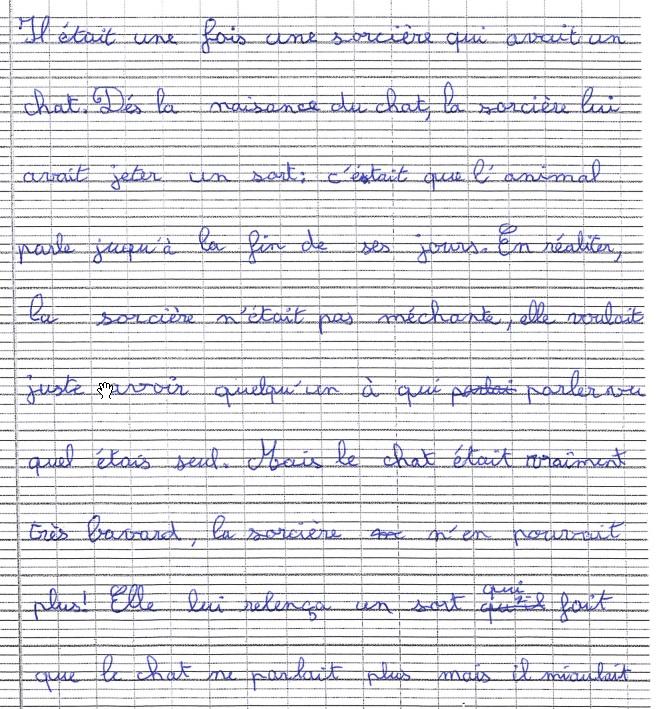 Il était une fois une sorcière qui avait un
chat. Dés la naisance du chat, la sorcière lui
avait jeter un sort: c'était que l'animal
parle juqu'à la fin de ses jours. En réaliter,
la sorcière n'était pas méchante, elle voulait
juste avoir quelqu'un à qui parlai parler vu
quel étais seul. Mais le chat était vraiment
très bavard, la sorcière ne n'en pouvait
plus! Elle lui relença un sort qui qu'il fait
que le chat ne parlait plus mais il miaulait